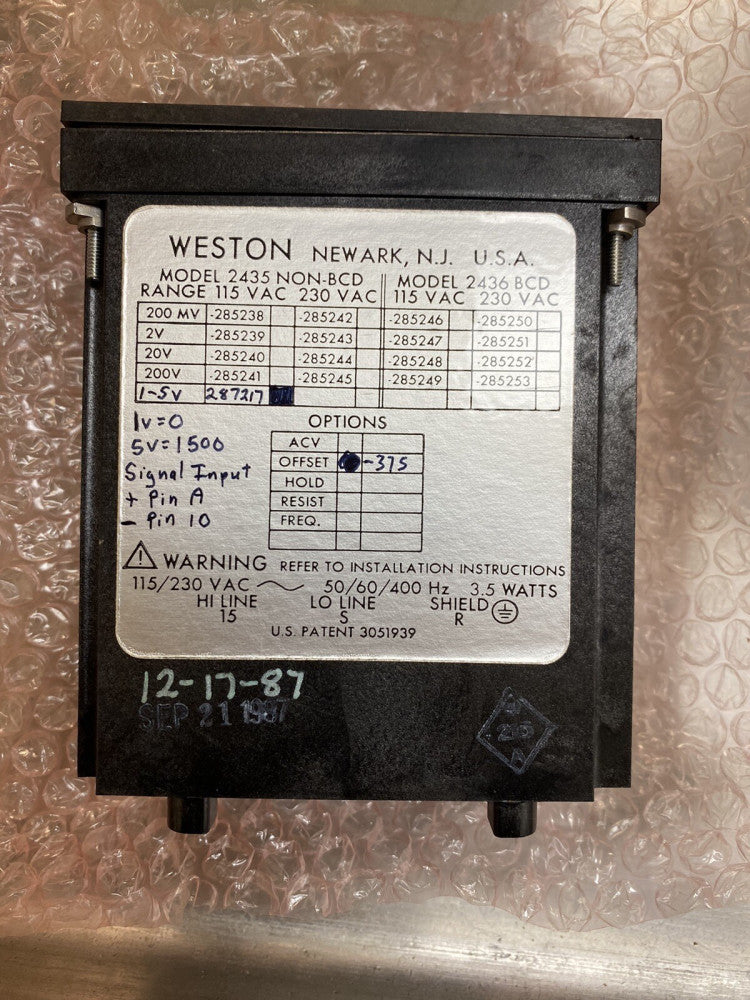 WESTON NEWARK, N.J. U.S.A.
MODEL 2435 NON-BCD MODEL 2436 BCD
RANGE 115 VAC 230 VAC 115 VAC 230 VAC
200 MV -285238 -285242 -285246 -285250
2V -285239 -285243 -285247 -285251
20V -285240 -285244 -285248 -285252
200V -285241 -285245 -285249 -285253
1-5V 287217
1v=0
5v=1500
Signal Input
+ Pin A
- Pin 10
OPTIONS
ACV
OFFSET -375
HOLD
RESIST
FREQ.
WARNING REFER TO INSTALLATION INSTRUCTIONS
115/230 VAC 50/60/400 Hz 3.5 WATTS
HI LINE LO LINE SHIELD
15 S R
U.S. PATENT 3051939
12-17-87
SEP 21 1987